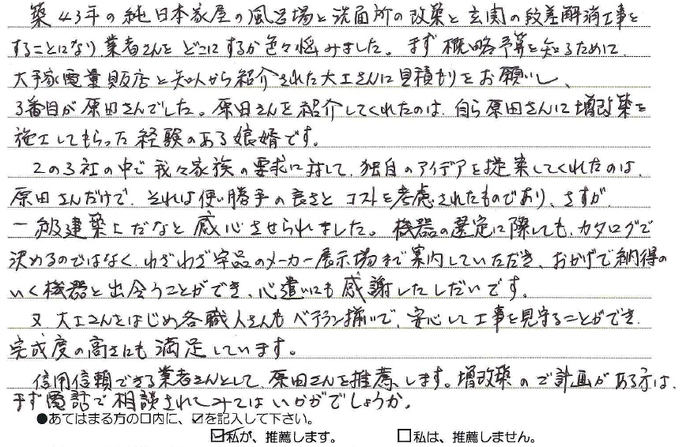 築43年の純日本家屋の風呂場と洗面所の改築と玄関の段差解消工事を
することになり業者さんをどこにするか色々悩みました。まず概略予算を知るために、
大手家電量販店と知人から紹介された大工さんに見積もりをお願いし、
3番目が原田さんでした。原田さんを紹介してくれたのは、自ら原田さんに増改築を
施工してもらった経験のある娘婿です。
この3社の中で我々家族の要求に対して、独自のアイデアを提案してくれたのは、
原田さんだけで、それは使い勝手の良さとコストを考慮されたものであり、さすが
一級建築士だなと感心させられました。機器の選定に際しても、カタログで
決めるのではなく、わざわざ実品のメーカー展示場まで案内していただき、おかげで納得の
いく機器と出会うことができ、心遣いにも感謝したしだいです。
又大工さんをはじめ各職人さんもベテラン揃いで、安心して工事を見守ることができ
完成度の高さにも満足しています。
信用信頼できる業者さんとして、原田さんを推薦します。増改築のご計画がある方は、
まず電話で相談されてみてはいかがでしょうか。
●あてはまる方の口内に、☑を記入して下さい。
☑私が、推薦します。 □私は、推薦しません。